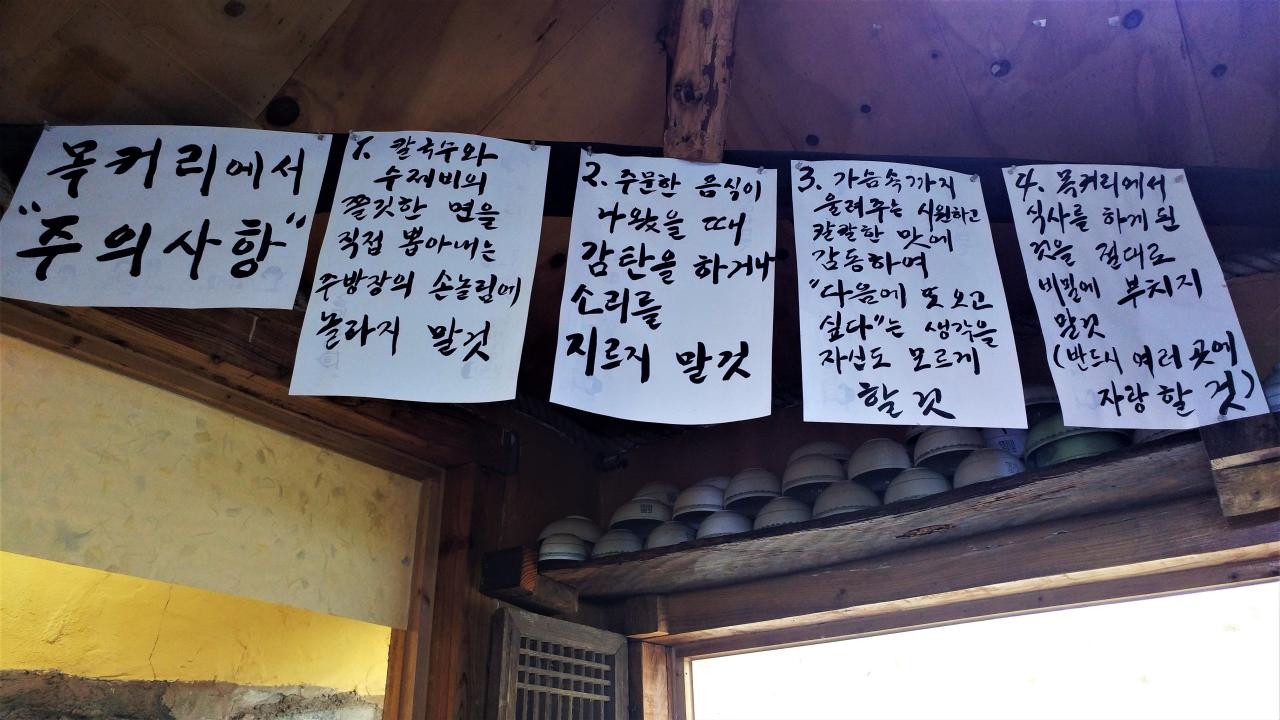 목커리에서
"주의사항"
1. 칼국수와
수제비의
쫄깃한 면을
직접 뽑아내는
주방장의 손놀림에
놀라지 말것
2. 주문한 음식이
나왔을 때
감탄을 하거나
소리를
지르지 말것
3. 가슴속까지
울려주는 시원하고
칼칼한 맛에
감동하여
"다음에 또 오고
싶다"는 생각을
자신도 모르게
할 것
4. 목커리에서
식사를 하게 된
것을 절대로
비밀에 부치지
말것
(반드시 여러 곳에
자랑 할 것)